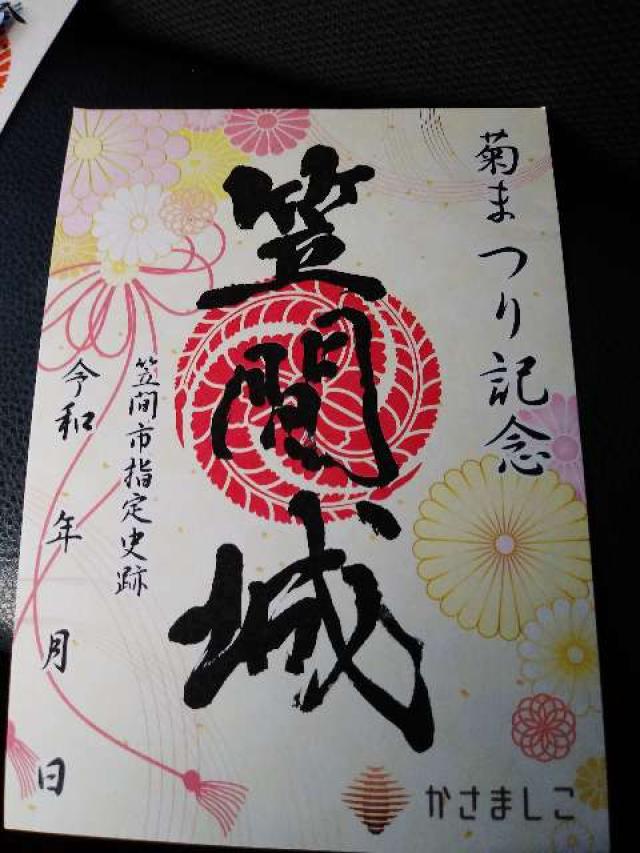 菊まつり記念
笠間城
笠間市指定史跡
令和 年 月 日
かさましこ